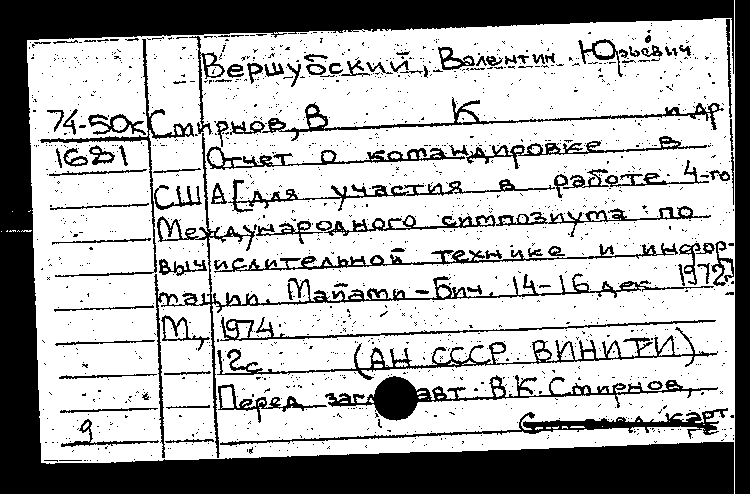 Вершубский, Валентин Юрьевич
74-50к Смирнов, В К и др.
1621 Отчет о командировке в
США [для участия в работе 4-го
Международного симпозиума по
вычислительной технике и инфор-
мации. Майами-Бич. 14-16 дек. 1972]
М., 1974.
12с. (АН СССР. ВИНИТИ).
Перед загл. авт.: В.К. Смирнов,
9 См. след. карт.